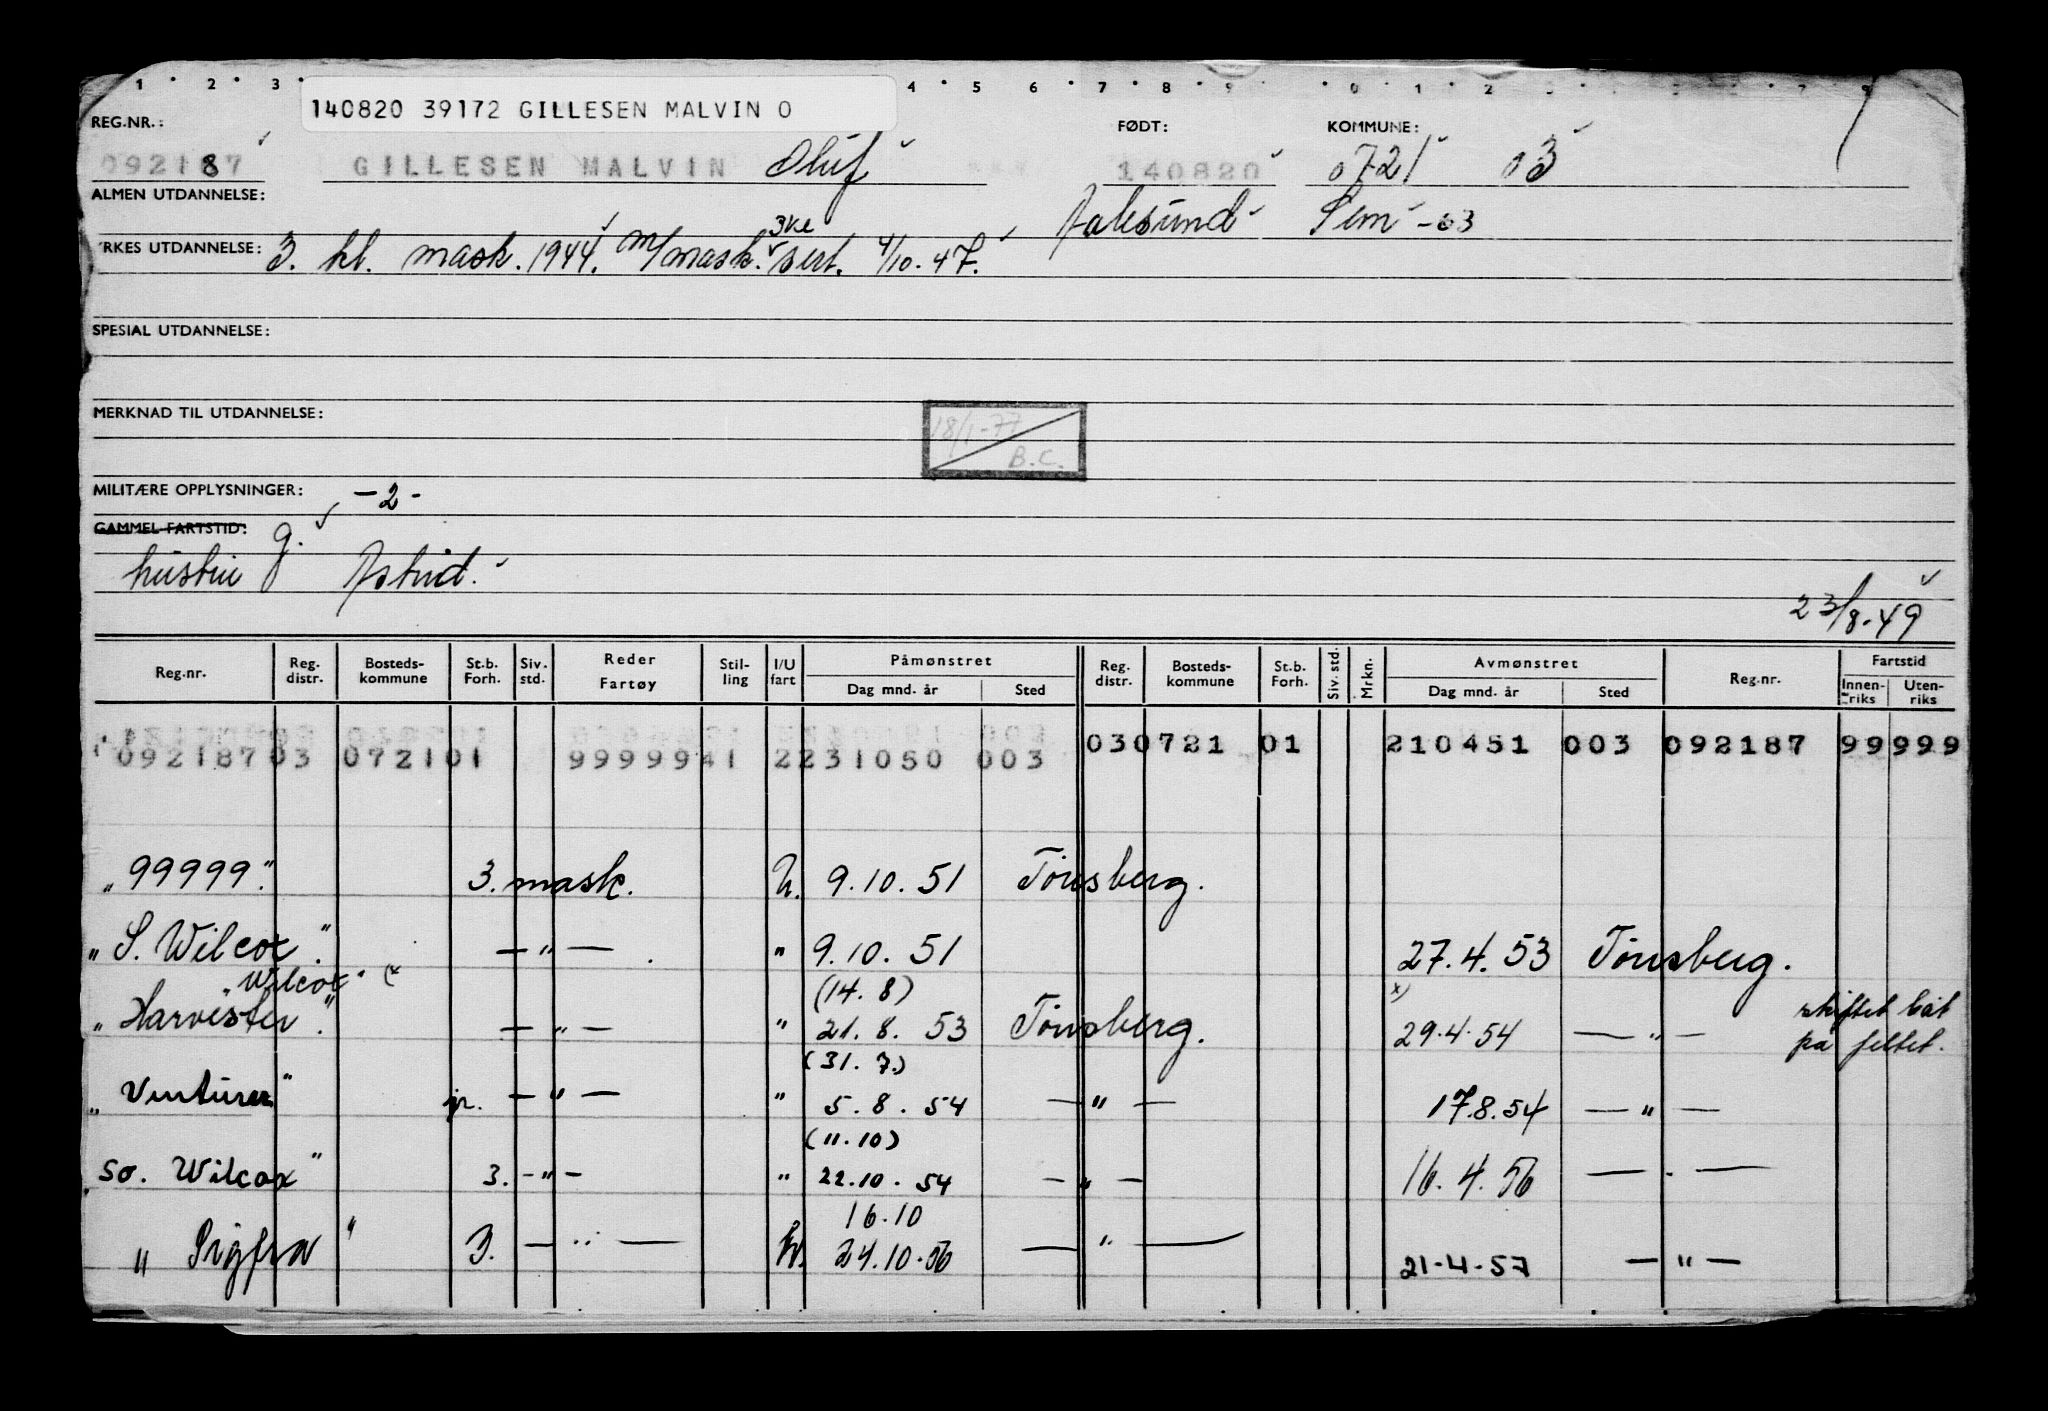 1 · 2 · 3 · 4 · 5 · 6 · 7 · 8 · 9 · 0 · 1 · 2
140820 39172 GILLESEN MALVIN O
REG.NR.: FØDT: KOMMUNE:
092187 GILLESEN MALVIN Oluf 140820 0721 03
ALMEN UTDANNELSE: Aalesund Sem -03
YRKES UTDANNELSE: 3. kl. mask. 1944. m/mask. 3kl sert. 4/10.47.
SPESIAL UTDANNELSE:
MERKNAD TIL UTDANNELSE:
18/1-77
B.C.
MILITÆRE OPPLYSNINGER: -2-
GAMMEL FARTSTID: g.
hustru Astrid.
23/8.49
Reg.nr. Reg. distr. Bosteds-kommune St.b. Forh. Siv. std. Reder Fartøy Stil-ling I/U fart Påmønstret Dag mnd. år Sted Reg. distr. Bosteds-kommune St.b. Forh. Siv. std. Mrkn. Avmønstret Dag mnd. år Sted Reg.nr. Fartstid Innen-riks Uten-riks
092187 03 0721 01 99999 41 2 231050 003 03 0721 01 210451 003 092187 99 999
"99999." 3. mask. U. 9.10.51 Tönsberg.
"S. Wilcox." — " — " 9.10.51 27.4.53 Tönsberg.
"Wilcox" (x (14.8) x) skiftet båt
"Harvester." — " — " 21.8.53 Tönsberg. 29.4.54 — " — på feltet.
(31.7.)
"Venturer" jr. — " — " 5.8.54 — " — 17.8.54 — " —
(11.10)
"So. Wilcox" 3. - " - " 22.10.54 — " — 16.4.56 — " —
16.10
"Sigfra" 3. — " — U. 24.10.56 — " — 21.4.57 — " —